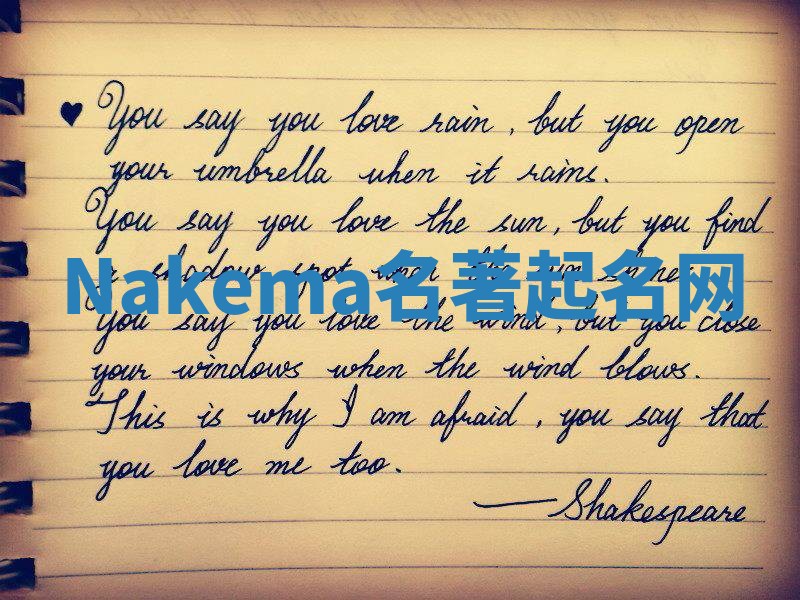 ♥ You say you love rain, but you open
your umbrella when it rains.
You say you love the sun, but you find
a shadow spot when the sun shines
Nakema名著起名网
You say you love the wind, but you close
your windows when the wind blows.
This is why I am afraid, you say that
you love me too.
—Shakespeare